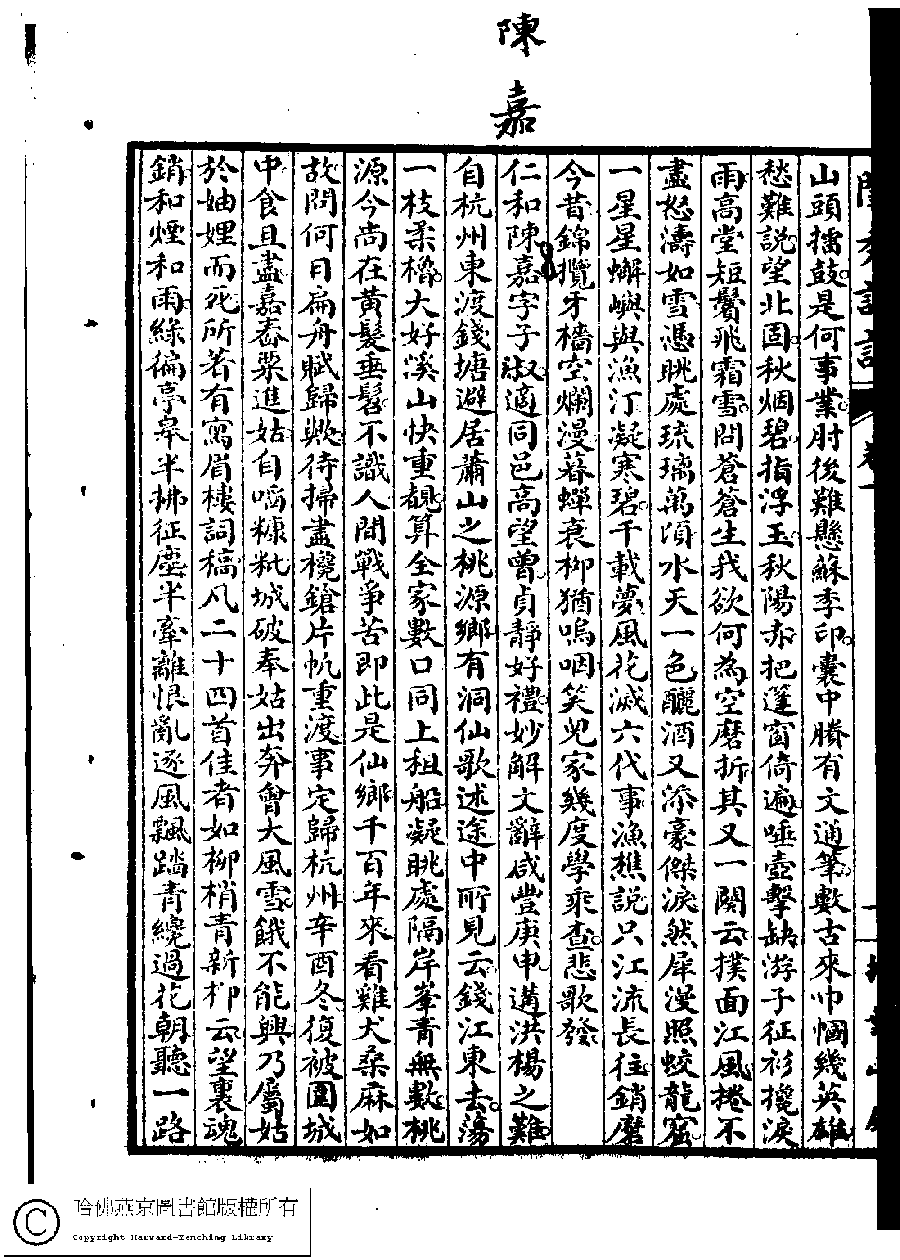 陳嘉
山頭擂鼓是何事業肘後難懸蘇季印囊中賸有文通筆數古來巾幗幾英雄
愁難說望北固秋烟碧指浮玉秋陽赤把篷窗倚遍唾壺擊缺游子征衫攙淚
雨高堂短鬢飛霜雪問蒼蒼生我欲何為空磨折其又一闋云撲面江風捲不
盡怒濤如雪憑眺處琉璃萬頃水天一色釃酒又添豪傑淚然犀漫照蛟龍窟
一星星蠏嶼與漁汀凝寒碧千載夢風花滅六代事漁樵說只江流長往銷磨
今昔錦纜牙檣空爛漫暮蟬衰柳猶嗚咽笑兒家幾度學乘查悲歌發
仁和陳嘉字子淑適同邑高望曾貞靜好禮妙解文辭咸豐庚申遘洪楊之難
自杭州東渡錢塘避居蕭山之桃源鄉有洞仙歌述途中所見云錢江東去蕩
一枝柔櫓大好溪山快重覩算全家數口同上租船凝眺處隔岸峯青無數桃
源今尚在黃髮垂髫不識人間戰爭苦即此是仙鄉千百年來看雞犬桑麻如
故問何日扁舟賦歸歟待掃盡欃鎗片帆重渡事定歸杭州辛酉冬復被圍城
中食且盡嘉舂粟進姑自啗糠粃城破奉姑出奔會大風雪餓不能興乃屬姑
於妯娌而死所著有寫眉樓詞稿凡二十四首佳者如柳梢青新柳云望裏魂
銷和煙和雨綠徧亭皋半拂征塵半牽離恨亂逐風飄踏青纔過花朝聽一路
哈佛燕京圖書館版權所有
Copyright Harvard-Yenching Library